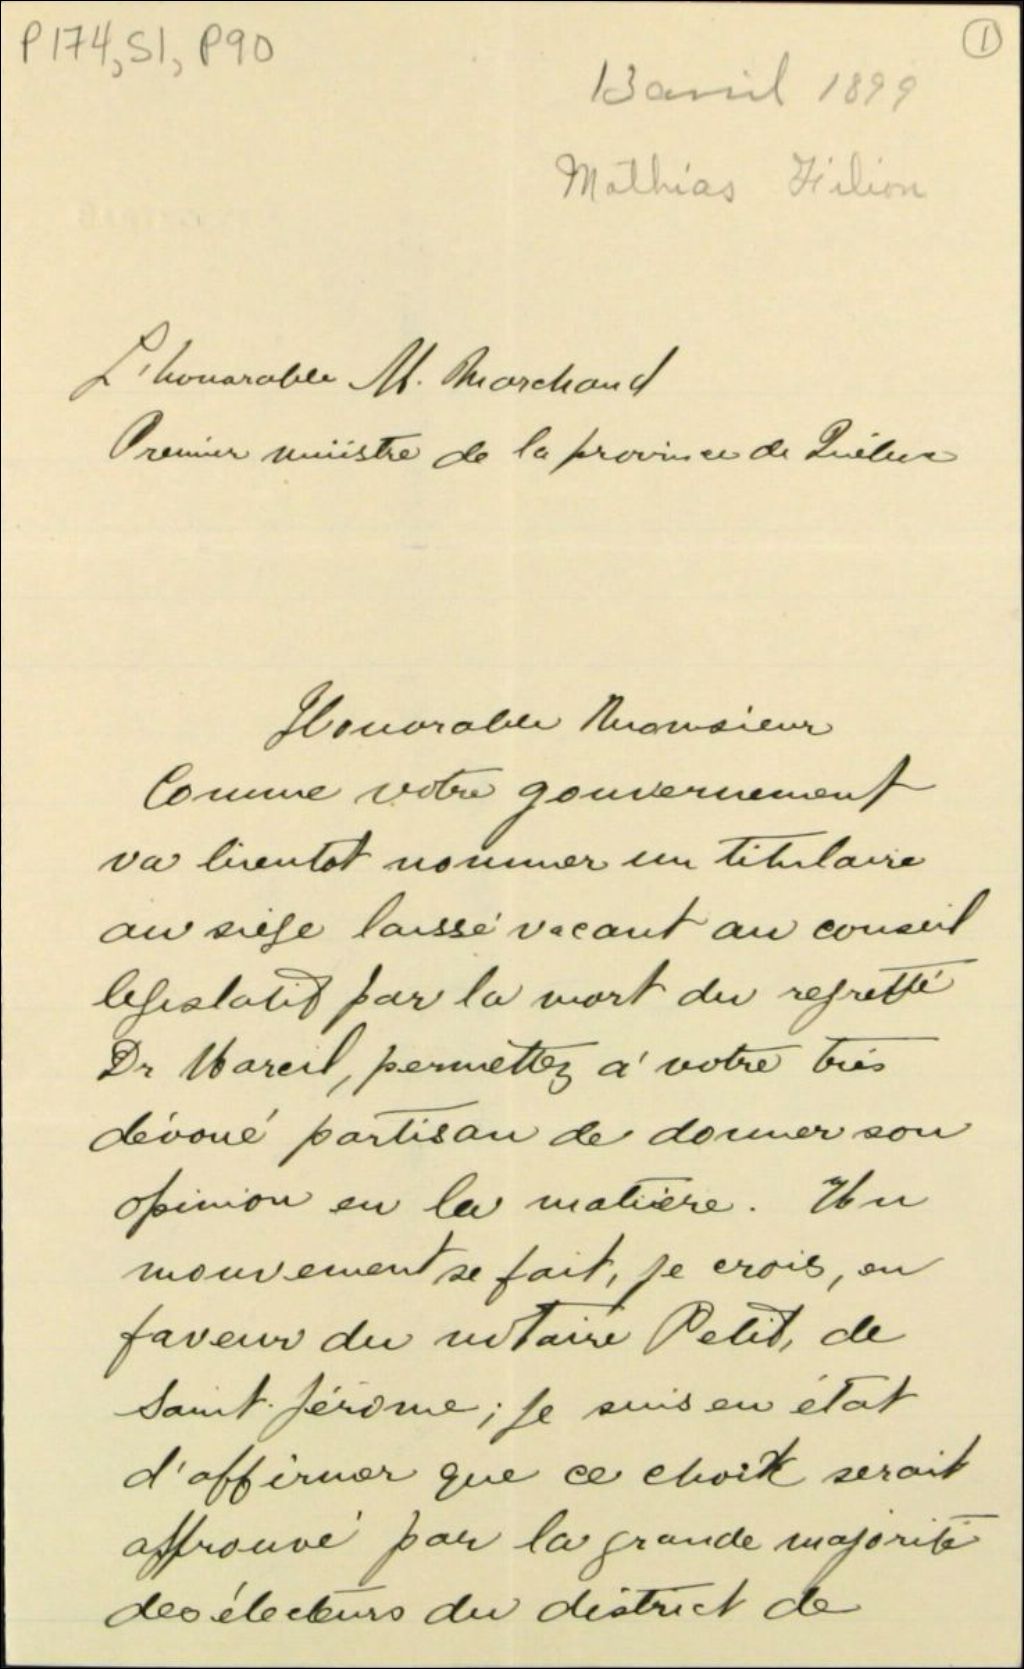 P174, S1, P90
1
13 avril 1899
Mathias Filion
L'honorable M. Marchand
Premier ministre de la province de Québec
Honorable Monsieur
Comme votre gouvernement
va bientot nommer un titulaire
au siège laissé vacant au conseil
législatif par la mort du regretté
Dr Marcil, permettez à votre très
dévoué partisan de donner son
opinion en la matière. Un
mouvement se fait, je crois, en
faveur du notaire Petit, de
Saint-Jérome; je suis en état
d'affirmer que ce choix serait
approuvé par la grande majorité
des électeurs du district de